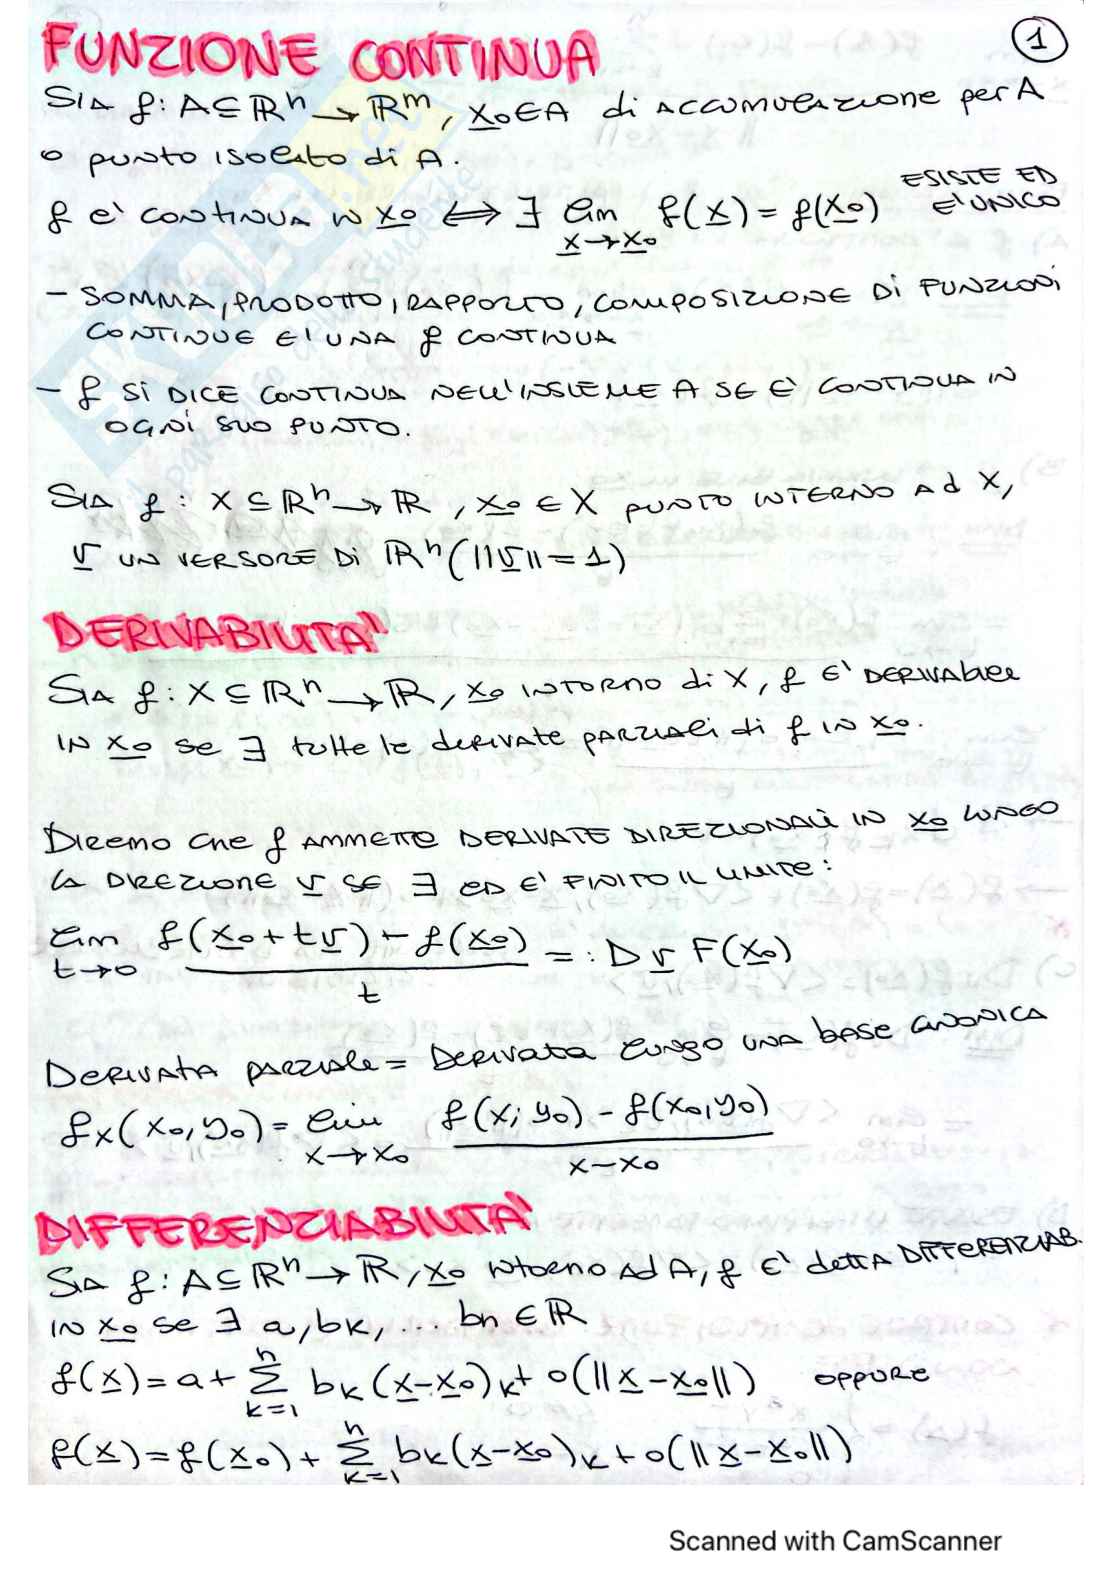 FUNZIONE CONTINUA
1
SIA f: A⊆ℝⁿ → ℝᵐ, x₀∈A di ACCUMULAZIONE per A
o punto isolato di A.
f e' continua in x₀ ⟺ ∃ lim f(x) = f(x₀) ESISTE ED E' UNICO
x→x₀
- SOMMA, PRODOTTO, RAPPORTO, COMPOSIZIONE DI FUNZIONI
CONTINUE E' UNA f CONTINUA
- f SI DICE CONTINUA NELL'INSIEME A SE E' CONTINUA IN
OGNI SUO PUNTO.
SIA f: X⊆ℝⁿ → ℝ, x₀ ∈ X PUNTO INTERNO Ad X,
v UN VERSORE DI ℝⁿ (||v|| = 1)
DERIVABILITA'
SIA f: X⊆ℝⁿ → ℝ, x₀ INTORNO di X, f E' DERIVABILE
IN x₀ se ∃ tutte le derivate parziali di f IN x₀.
Diremo che f AMMETTE DERIVATE DIREZIONALI IN x₀ LUNGO
LA DIREZIONE v SE ∃ ED E' FINITO IL LIMITE:
lim f(x₀+tv) - f(x₀) =: D v F(x₀)
t→0 t
DERIVATA parziale = Derivata lungo UNA base CANONICA
fx(x₀,y₀) = lim f(x; y₀) - f(x₀,y₀)
x→x₀ x-x₀
DIFFERENZIABILITA'
SIA f: A⊆ℝⁿ → ℝ, x₀ intorno ad A, f E' detta DIFFERENZIAB.
IN x₀ se ∃ a, bk, ... bn ∈ ℝ
f(x) = a + Σ bk (x-x₀)k + o(||x-x₀||) OPPURE
n
k=1
f(x) = f(x₀) + Σ bk(x-x₀)k + o(||x-x₀||)
n
k=1
Scanned with CamScanner